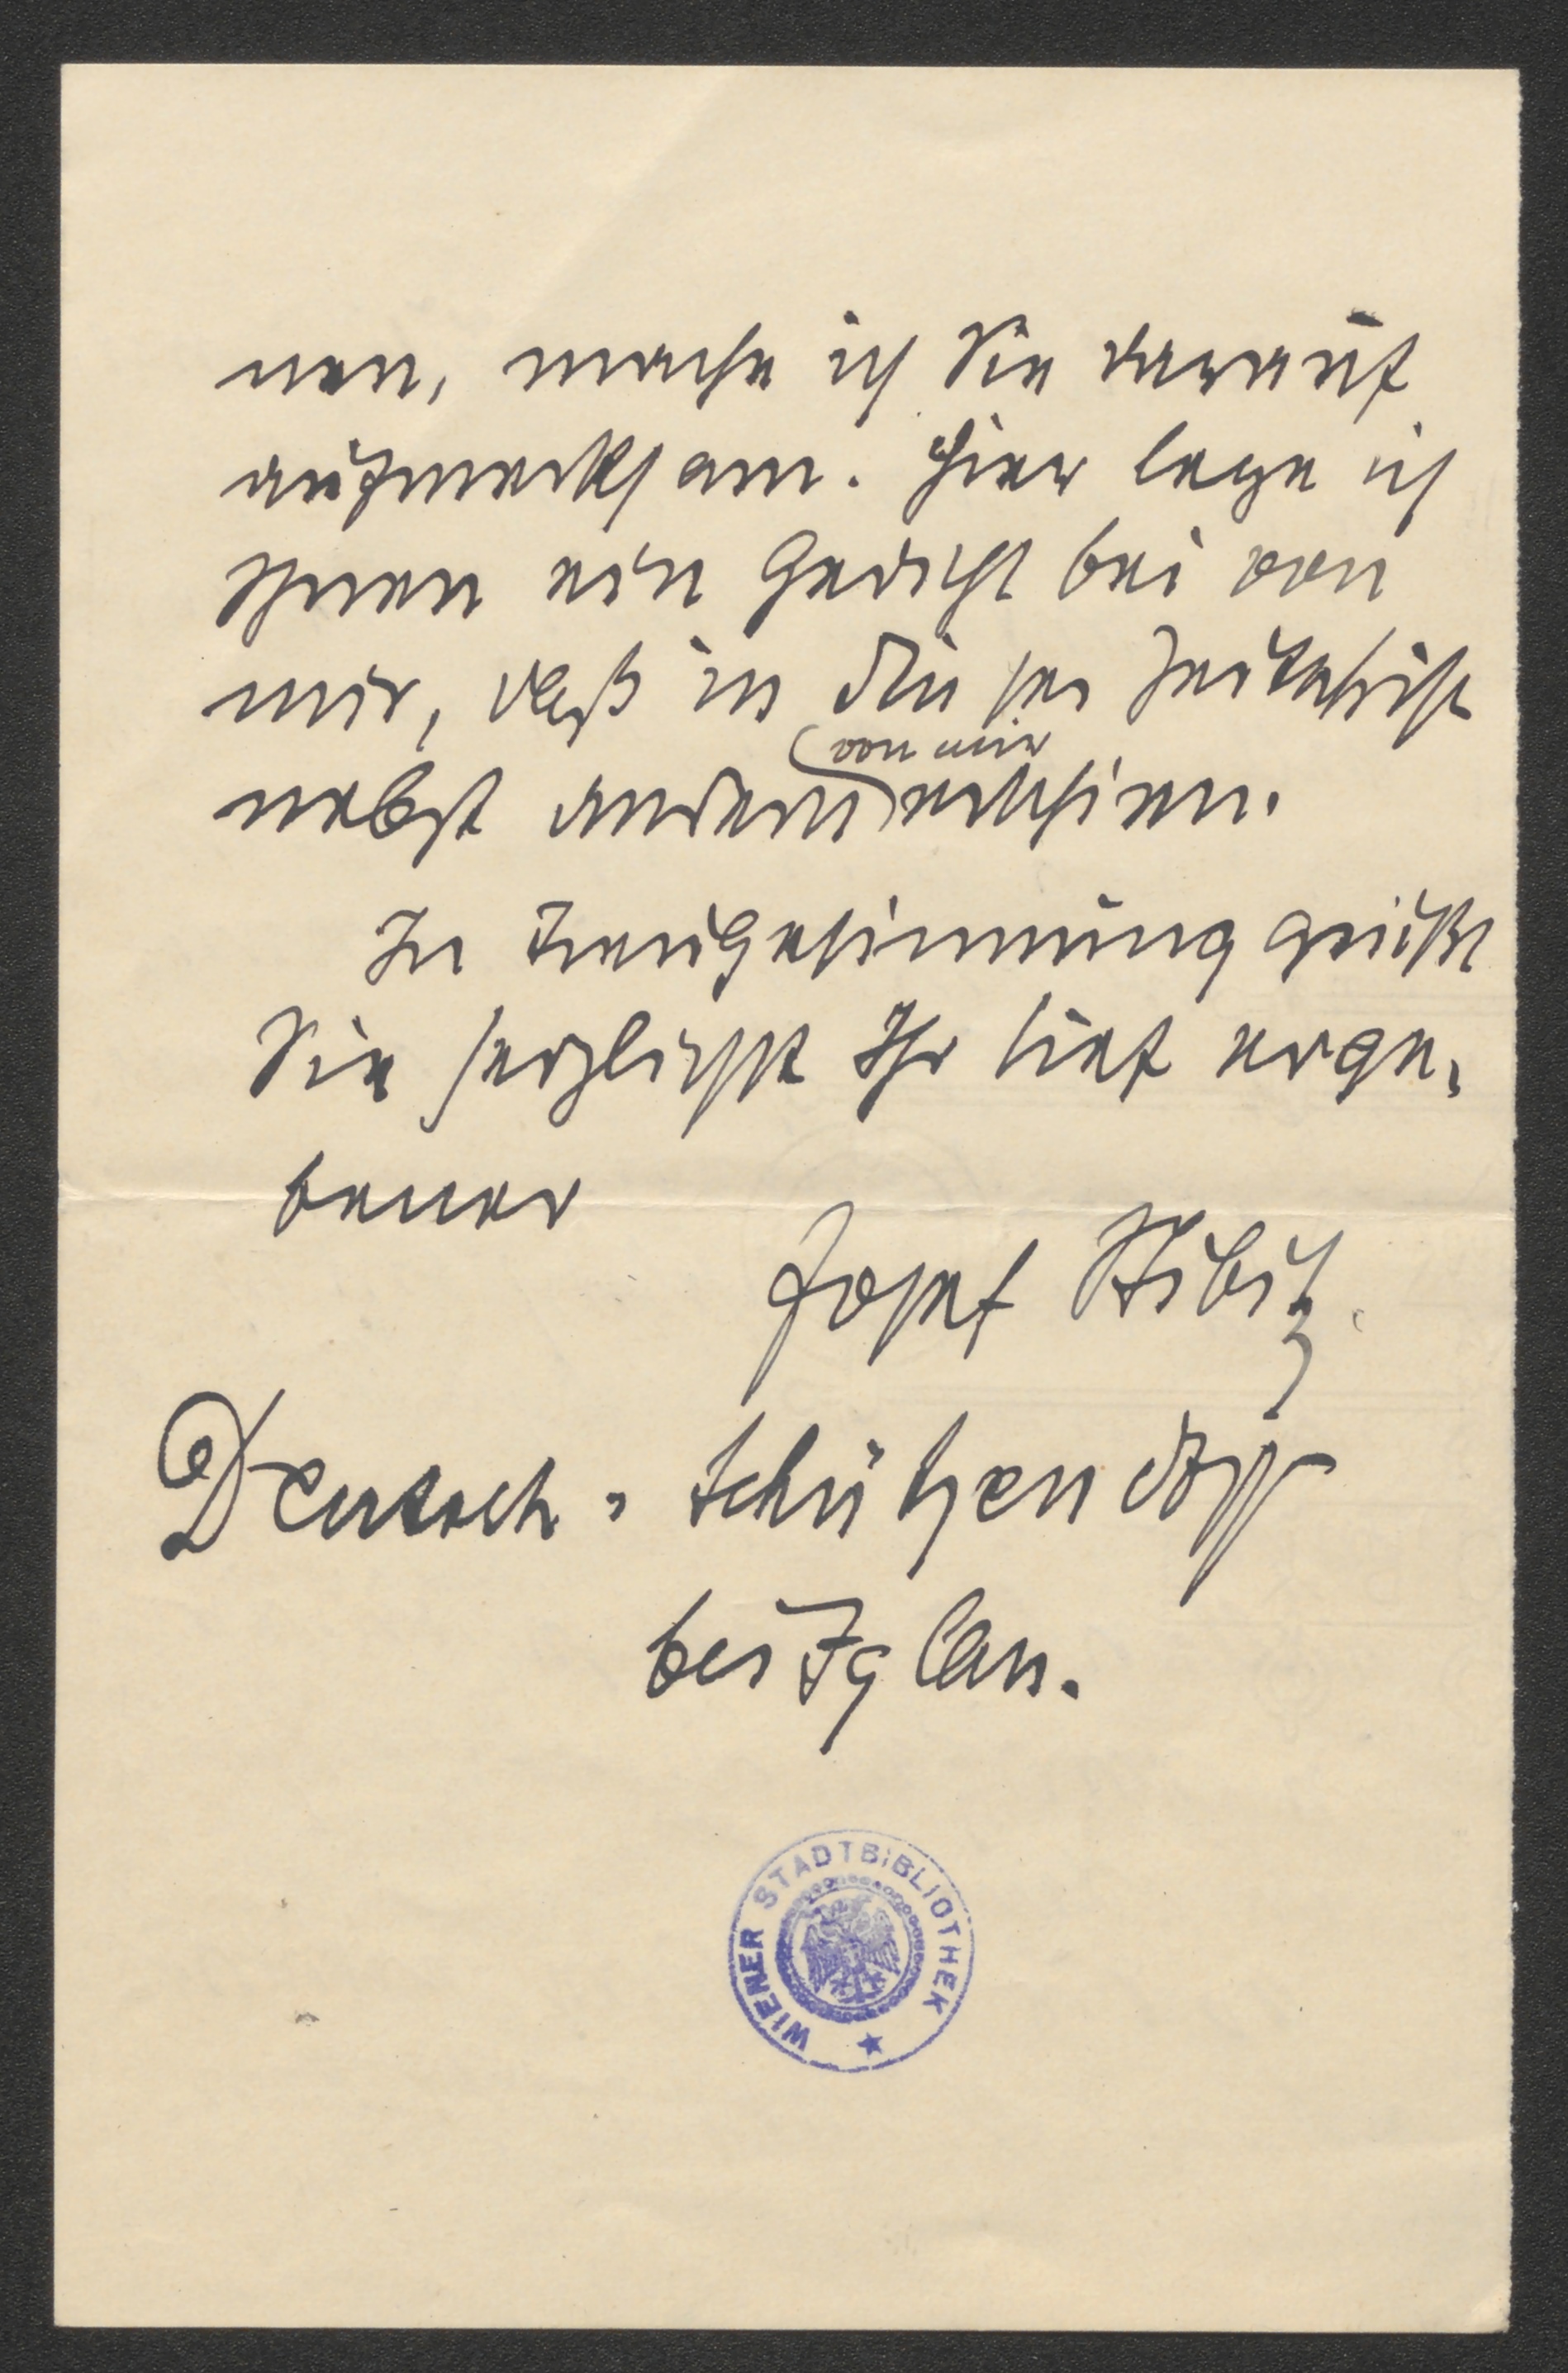 nen, mache ich Sie darauf
aufmerksam. Hier lege ich
Ihnen ein Gedicht bei von
mir, daß in dieser Zeitschrift
von mir
nebst andern erschien.
In Treugesinnung grüßt
Sie herzlichst Ihr tief erge-
bener
Josef Stibitz.
Deutsch-Schützendorf
bei Iglau.
WIENER STADTBIBLIOTHEK